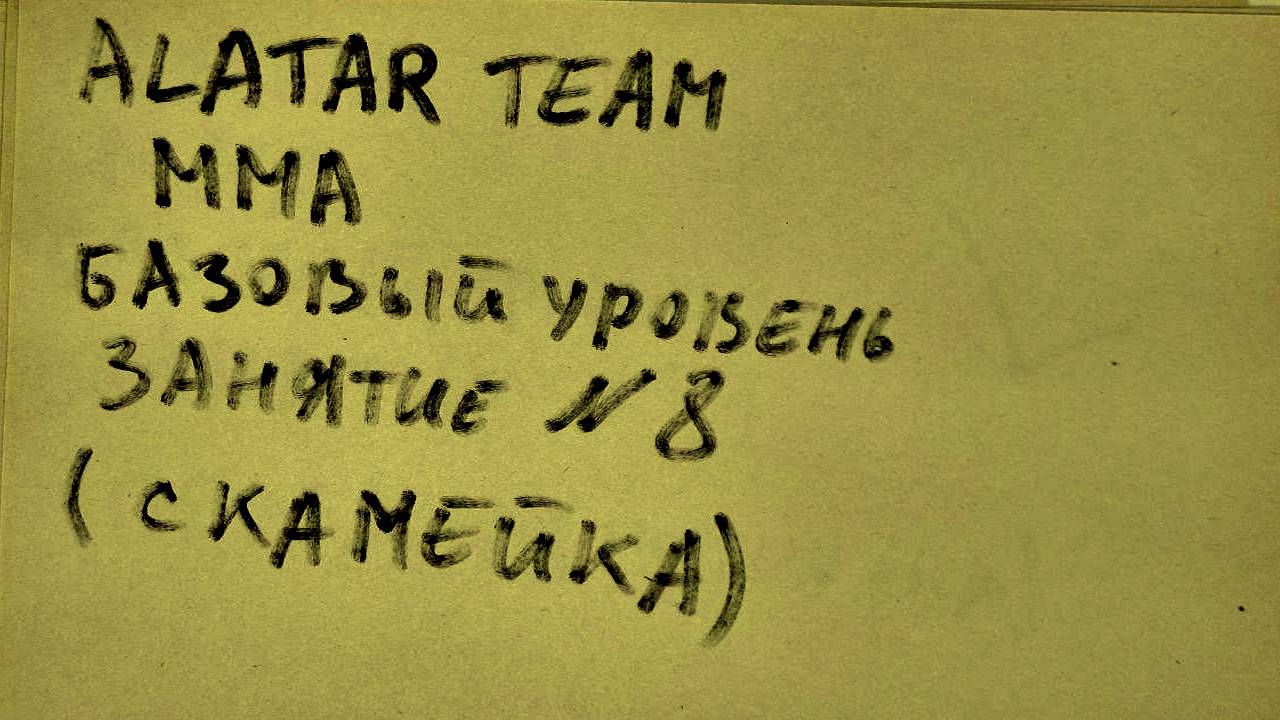 ALATAR TEAM
MMA
БАЗОВЫЙ УРОВЕНЬ
ЗАНЯТИЕ N 8
(СКАМЕЙКА)